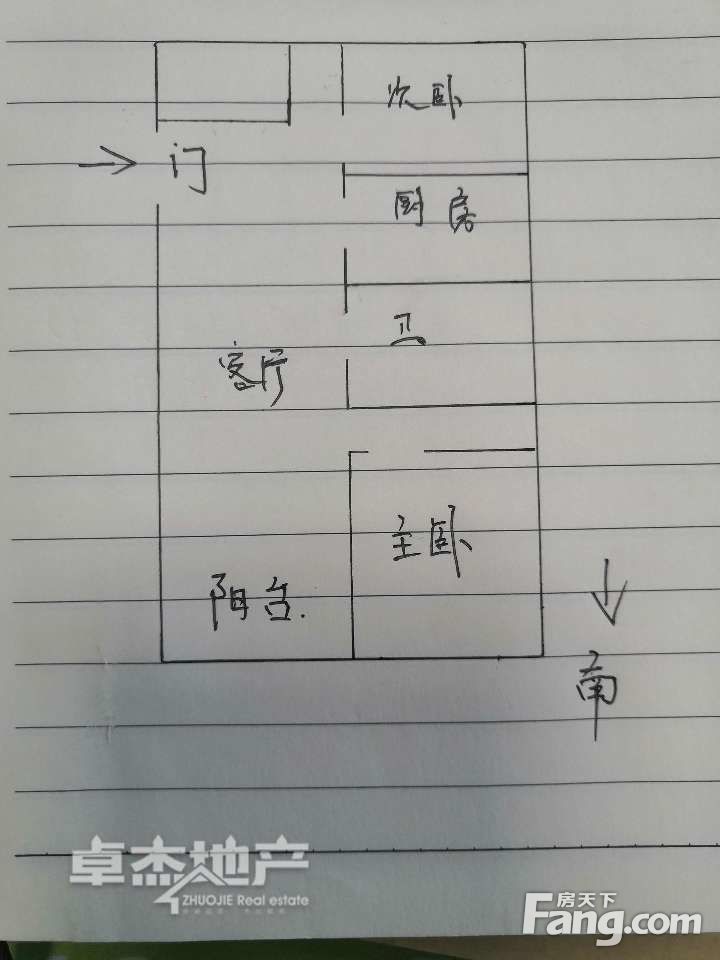 次卧
门
厨房
卫
客厅
主卧
阳台.
南
卓杰地产
ZHUOJIE Real estate
房天下
Fang.com